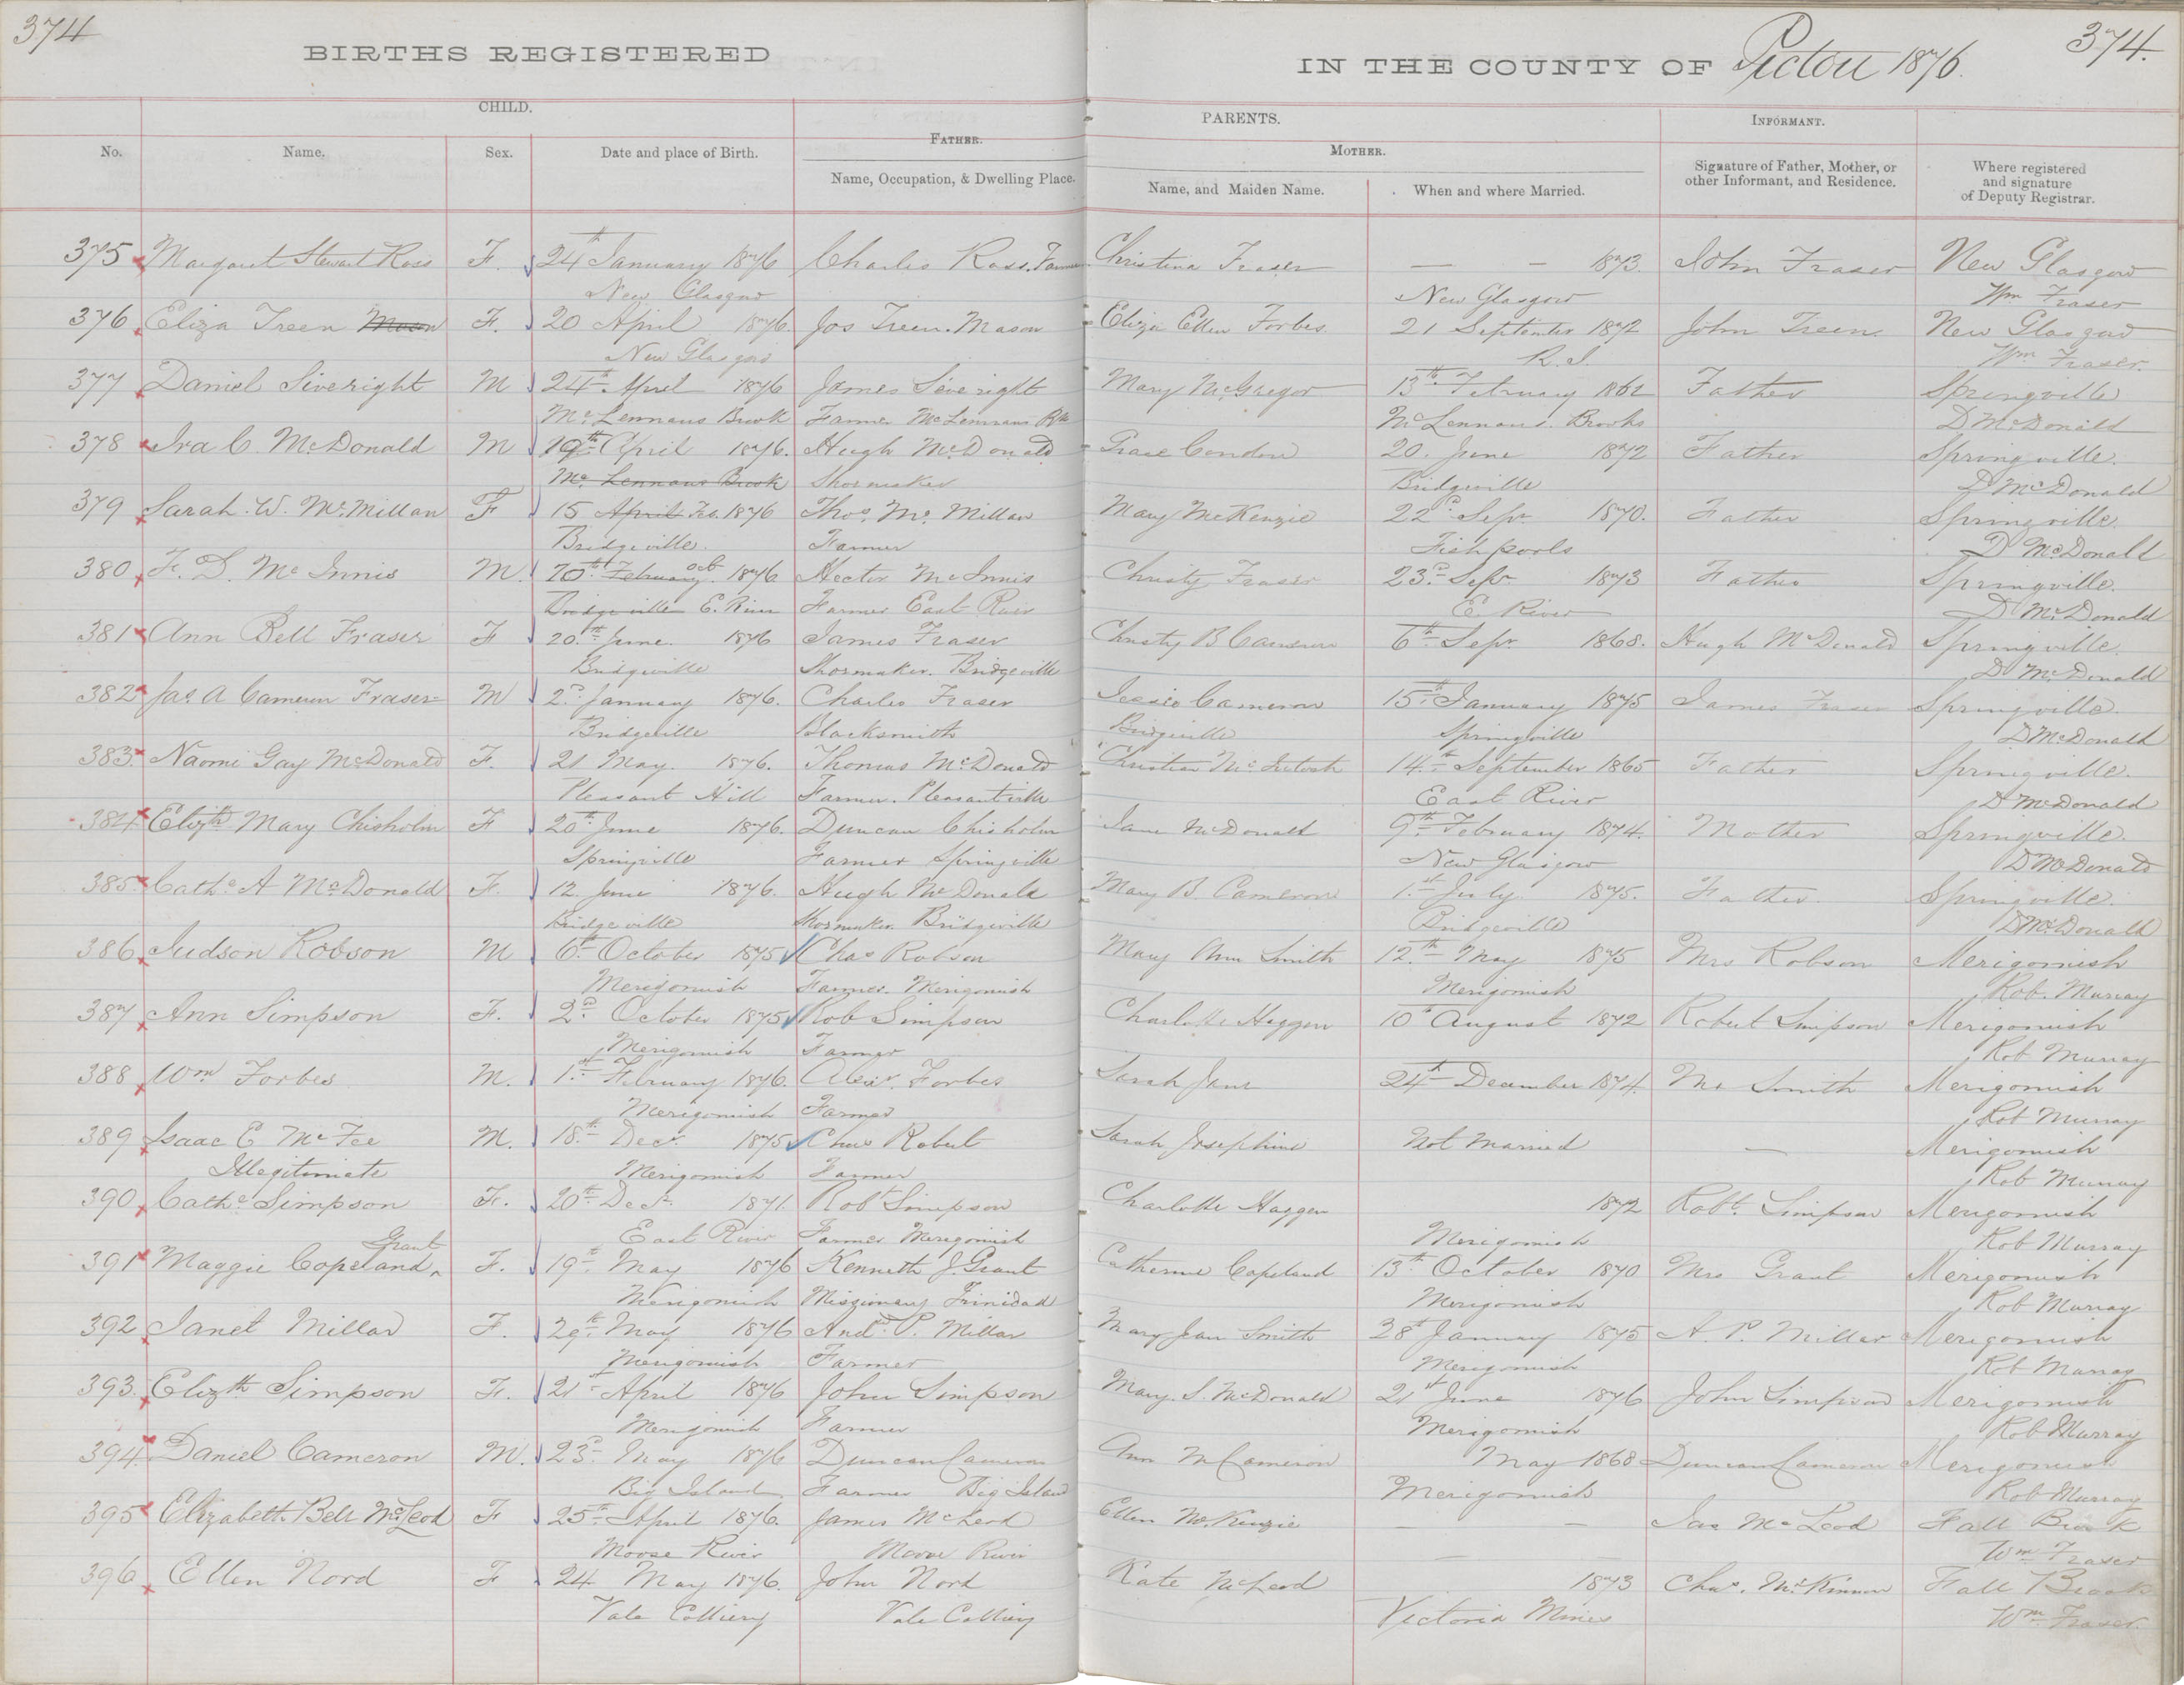 374
BIRTHS REGISTERED
IN THE COUNTY OF Pictou 1876.
374.
CHILD.
PARENTS.
INFORMANT.
No.
Name.
Sex.
Date and place of Birth.
FATHER.
Name, Occupation, & Dwelling Place.
MOTHER.
Name, and Maiden Name.
When and where Married.
Signature of Father, Mother, or
other Informant, and Residence.
Where registered
and signature
of Deputy Registrar.
375 Margaret Stewart Ross F. 24th January 1876 Charles Ross. Farmer Christina Fraser — - 1873. John Fraser New Glasgow
New Glasgow New Glasgow Wm Fraser
376 Eliza Treen Mason F. 20 April 1876. Jos Treen. Mason Eliza Ellen Forbes 21 September 1872 John Treen. New Glasgow
New Glasgow R. I. Wm Fraser.
377 Daniel Siveright M 24th April 1876 James Siveright Mary McGregor 13th February 1862 Father Springville
McLennans Brook Farmer McLennans Bk McLennans Brooks D McDonald
378 Ira C. McDonald M 19th April 1876. Hugh McDonald Grace Condon 20. June 1872 Father Springville.
Mc Lennans Brook Shormaker Bridgeville D McDonald
379 Sarah. W. McMillan F 15 April Feb. 1876 Thos. McMillan Mary McKenzie 22d Sepr 1870. Father Springville.
Bridgeville. Farmer Fishpools D McDonald
380 F. D. McInnis M. 10th February oct 1876 Hector McInnis Christy Fraser 23d Sepr 1873 Father Springville.
Bridgeville E. River Farmer East River E River D McDonald
381 Ann Bell Fraser F 20th June. 1876 James Fraser Christy B Cameron 6th Sepr. 1868. Hugh McDonald Springville.
Bridgeville Shormaker. Bridgeville D McDonald
382 Jas. A Cameron Fraser M 2d January 1876. Charles Fraser Jessie Cameron 15th January 1875 James Fraser Springville.
Bridgeville Blacksmith Bridgeville Springville D McDonald
383. Naomi Gay McDonald F. 21 May. 1876. Thomas McDonald Christian McIntosh 14th September 1865 Father Springville.
Pleasant Hill Farmer. Pleasantville East River D McDonald
384 Elizth Mary Chisholm F 20th June 1876. Duncan Chisholm Jane McDonald 9th February 1874. Mother Springville.
Springville Farmer Springville New Glasgow D McDonald
385. Cathe A McDonald F. 12 June 1876. Hugh McDonald Mary B. Cameron 1st July 1875. Father. Springville.
Bridgeville Shormaker Bridgeville Bridgeville D McDonald
386 Judson Robson M 6th October 1875 Chas Robson Mary Ann Smith 12th May 1875 Mrs Robson Merigomish
Merigomish Farmer. Merigomish Merigomish Rob. Murray
387 Ann Simpson F. 2d October 1875 Rob Simpson Charlotte Haggen 10th August 1872 Robert Simpson Merigomish
Merigomish Farmer Rob Murray
388 Wm Forbes M. 1st February 1876. Alexr. Forbes Sarah Jane 24th December 1874. Mr Smith Merigomish
Merigomish Farmer Rob Murray
389 Isaac E McFee M. 18th Decr. 1875 Chas Robert Sarah Josephine Not Married — Merigomish
Illegitimate Merigomish Farmer Rob Murray
390 Cathe Simpson F. 20th Decr. 1871. Robt Simpson Charlotte Haggen 1872 Robt. Simpson Merigomish
East River Farmer Merigomish Merigomish Rob Murray
391 Maggie Copeland Grant F. 19th May 1876 Kenneth J. Grant Catherine Copeland 13th October 1870 Mrs Grant Merigomish
Merigomish Missionary Trinidad Merigomish Rob Murray
392 Janet Millar F. 29th May 1876 And. P. Millar Mary Jean Smith 28th January 1875 A. P. Millar Merigomish
Merigomish Farmer Merigomish Rob Murray
393. Elizth Simpson F. 21st April 1876 John Simpson Mary. S. McDonald 21st June 1876 John Simpson Merigomish
Merigomish Farmer Merigomish Rob Murray
394. Daniel Cameron M. 23d May 1876 Duncan Cameron Ann M Cameron May 1868 Duncan Cameron Merigomish
Big Island Farmer Big Island Merigomish Rob Murray
395 Elizabeth Bell McLeod F 25th April 1876. James McLeod Ellen McKenzie — - Jas McLeod Fall Brook
Moose River Moose River — — Wm Fraser
396 Ellen Nord F 24 May 1876. John Nord Kate McLeod 1873 Chas. McKinnon Fall Brook
Vale Colliery Vale Colliery Victoria Mines Wm Fraser.